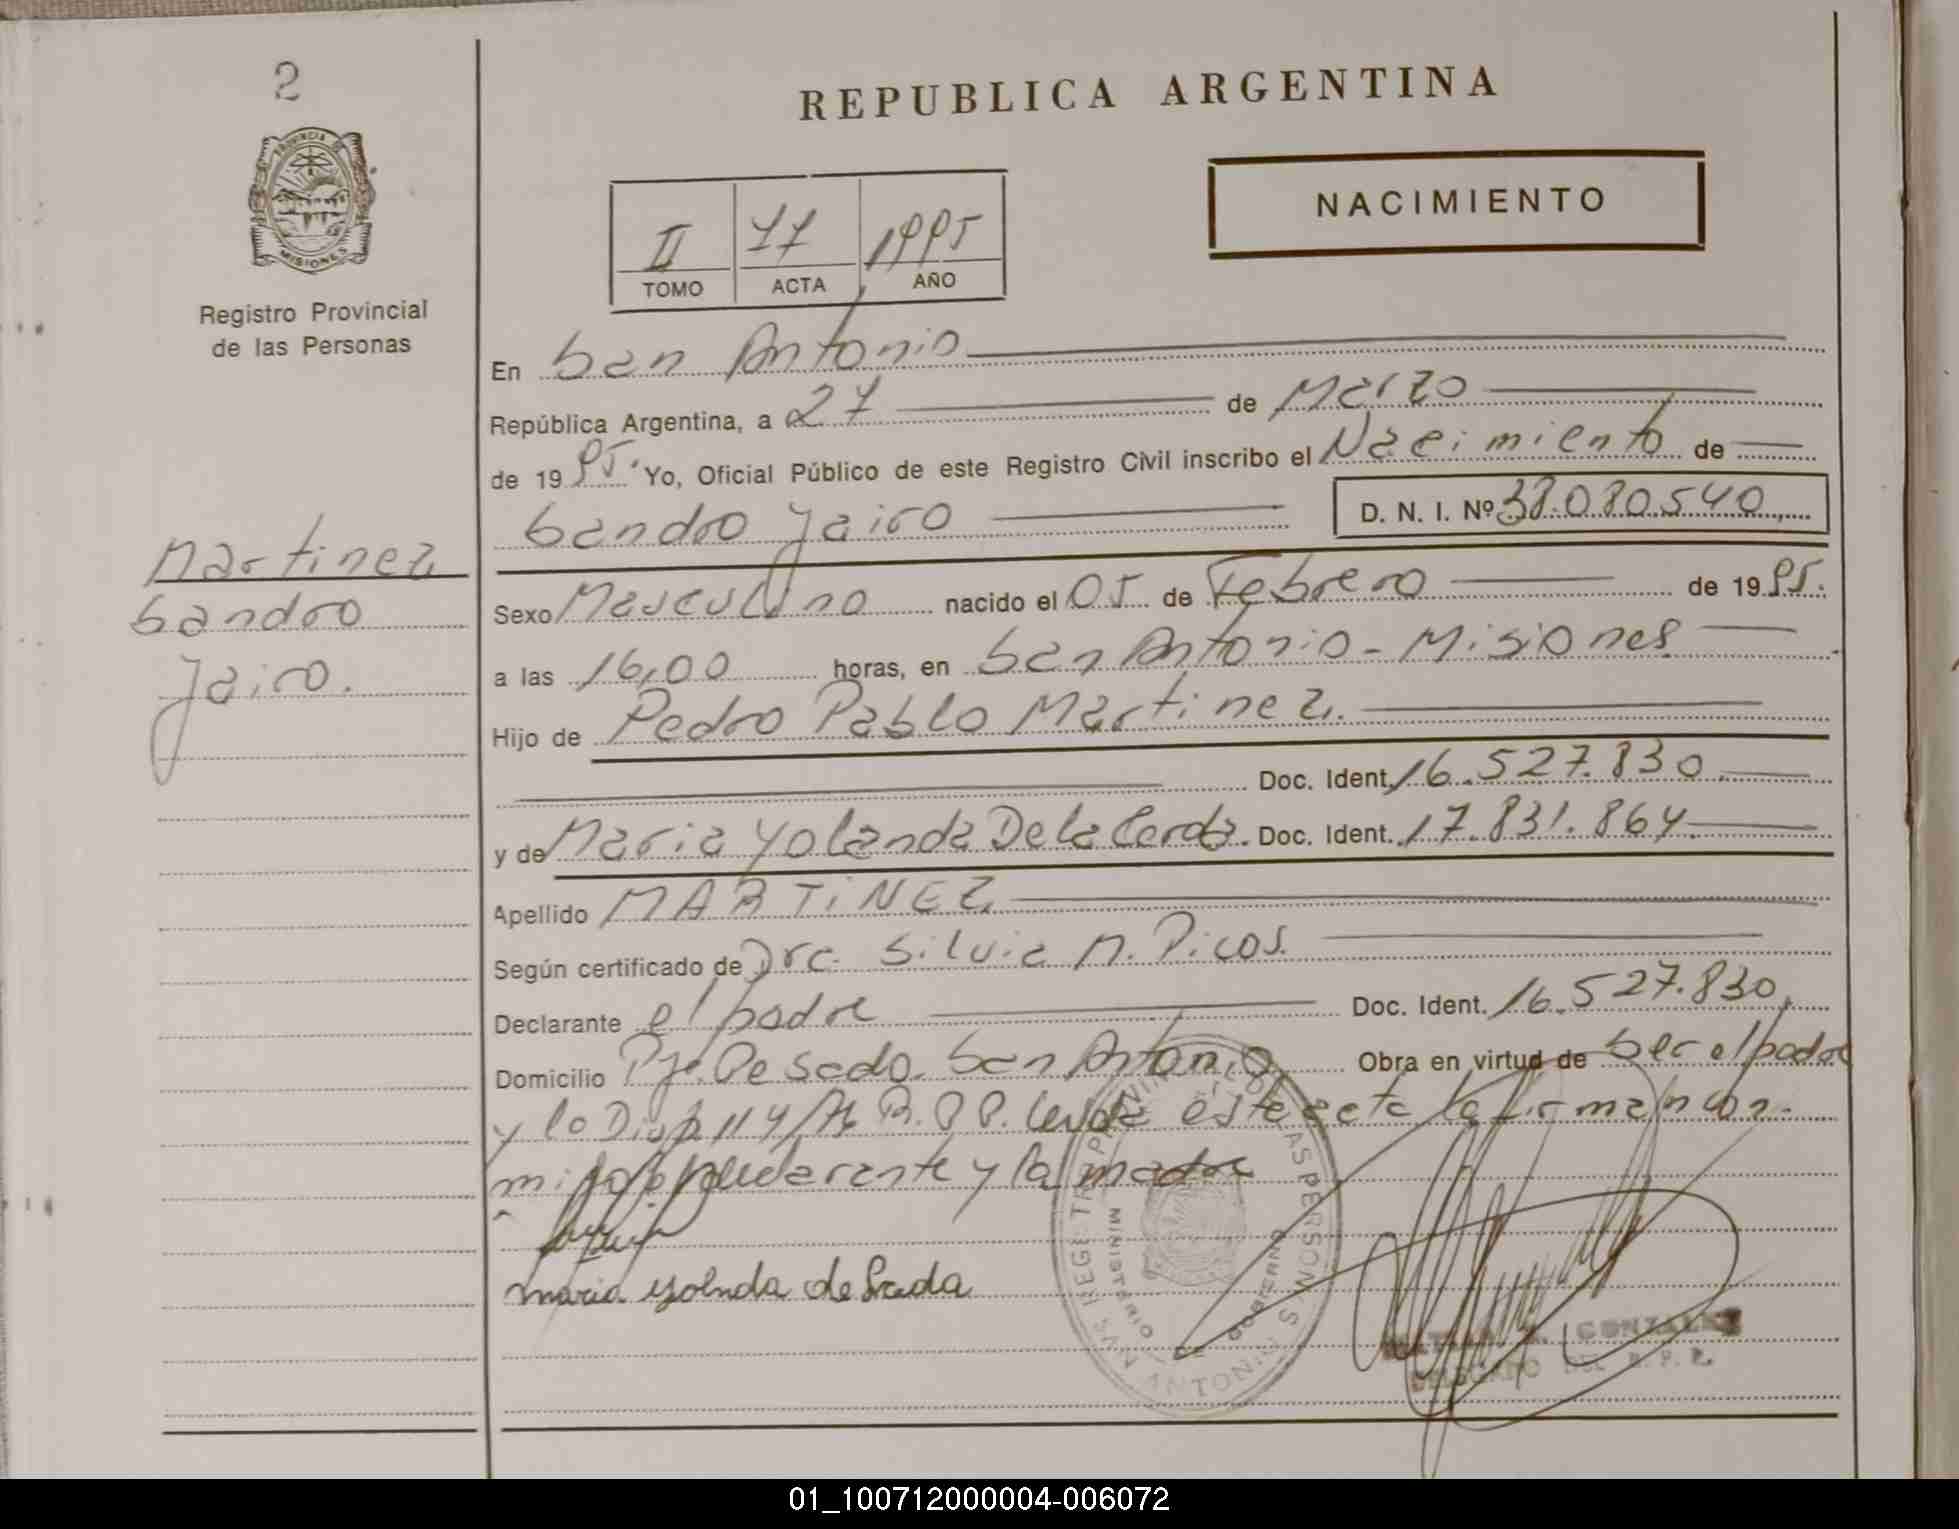 2
PROVINCIA DE
MISIONES
Registro Provincial
de las Personas
REPUBLICA ARGENTINA
NACIMIENTO
II 77 1995
TOMO ACTA AÑO
En San Antonio
República Argentina, a 27 de Marzo
de 1995. Yo, Oficial Público de este Registro Civil inscribo el Nacimiento de
Sandro Jairo D. N. I. Nº 38.080540
Martinez
Sandro
Jairo.
Sexo Masculino nacido el 05 de Febrero de 1995.
a las 16,00 horas, en San Antonio - Misiones
Hijo de Pedro Pablo Martinez.
Doc. Ident. 16.527.830
y de Maria Yolanda De la Cerda. Doc. Ident. 17.831.864
Apellido MARTiNEZ
Según certificado de Dra. Silvia M. Picos.
Declarante el padre Doc. Ident. 16.527.830
Domicilio Pje. Pesado. San Antonio Obra en virtud de Ser el padre
y lo Disp. 114/ R.P.P. leida este acta la firman con
migo el declarante y la madre
maria yolnda de
REGISTRO PROVINCIAL DE LAS PERSONAS
MINISTERIO DE GOBIERNO
SAN ANTONIO
GONZALEZ
DELEGADO DEL R. P. P.
01_100712000004-006072